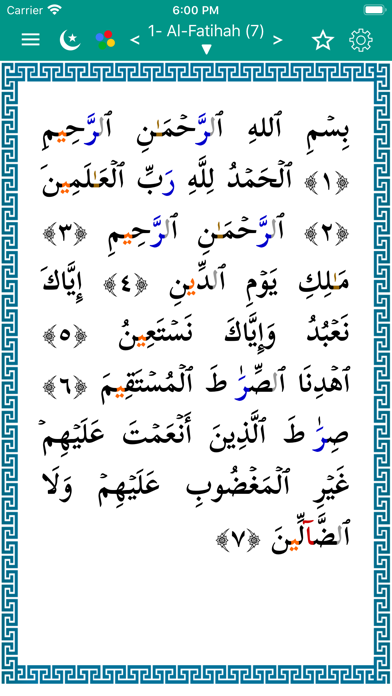 Carrier 6:00 PM
< 1- Al-Fatihah (7) >
▼
بِسۡمِ ٱللهِ ٱلرَّحۡمَـٰنِ ٱلرَّحِيمِ
﴿١﴾ ٱلۡحَمۡدُ لِلَّهِ رَبِّ ٱلۡعَـٰلَمِينَ
﴿٢﴾ ٱلرَّحۡمَـٰنِ ٱلرَّحِيمِ ﴿٣﴾
مَـٰلِكِ يَوۡمِ ٱلدِّينِ ﴿٤﴾ إِيَّاكَ
نَعۡبُدُ وَإِيَّاكَ نَسۡتَعِينُ ﴿٥﴾
ٱهۡدِنَا ٱلصِّرَٰطَ ٱلۡمُسۡتَقِيمَ ﴿٦﴾
صِرَٰطَ ٱلَّذِينَ أَنۡعَمۡتَ عَلَيۡهِمۡ
غَيۡرِ ٱلۡمَغۡضُوبِ عَلَيۡهِمۡ وَلَا
ٱلضَّآلِّينَ ﴿٧﴾